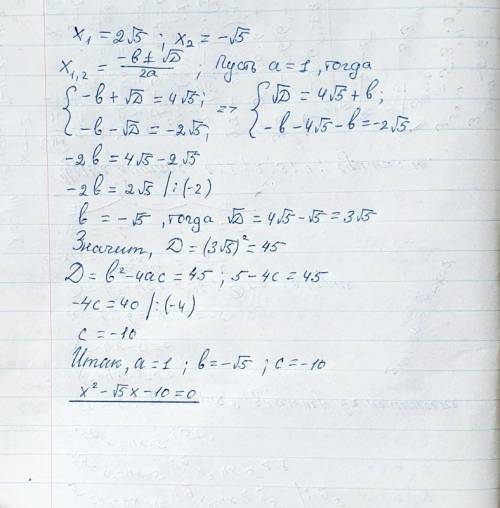 x₁ = 2√5 ; x₂ = -√5
x₁,₂ = (-b ± √D)/2a ; Пусть a = 1, тогда
{ -b + √D = 4√5; -b - √D = -2√5; => { √D = 4√5 + b; -b - 4√5 - b = -2√5.
-2b = 4√5 - 2√5
-2b = 2√5 |:(-2)
b = -√5, тогда √D = 4√5 - √5 = 3√5
Значит, D = (3√5)² = 45
D = b² - 4ac = 45 ; 5 - 4c = 45
-4c = 40 |:(-4)
c = -10
Итак, a = 1 ; b = -√5 ; c = -10
x² - √5x - 10 = 0